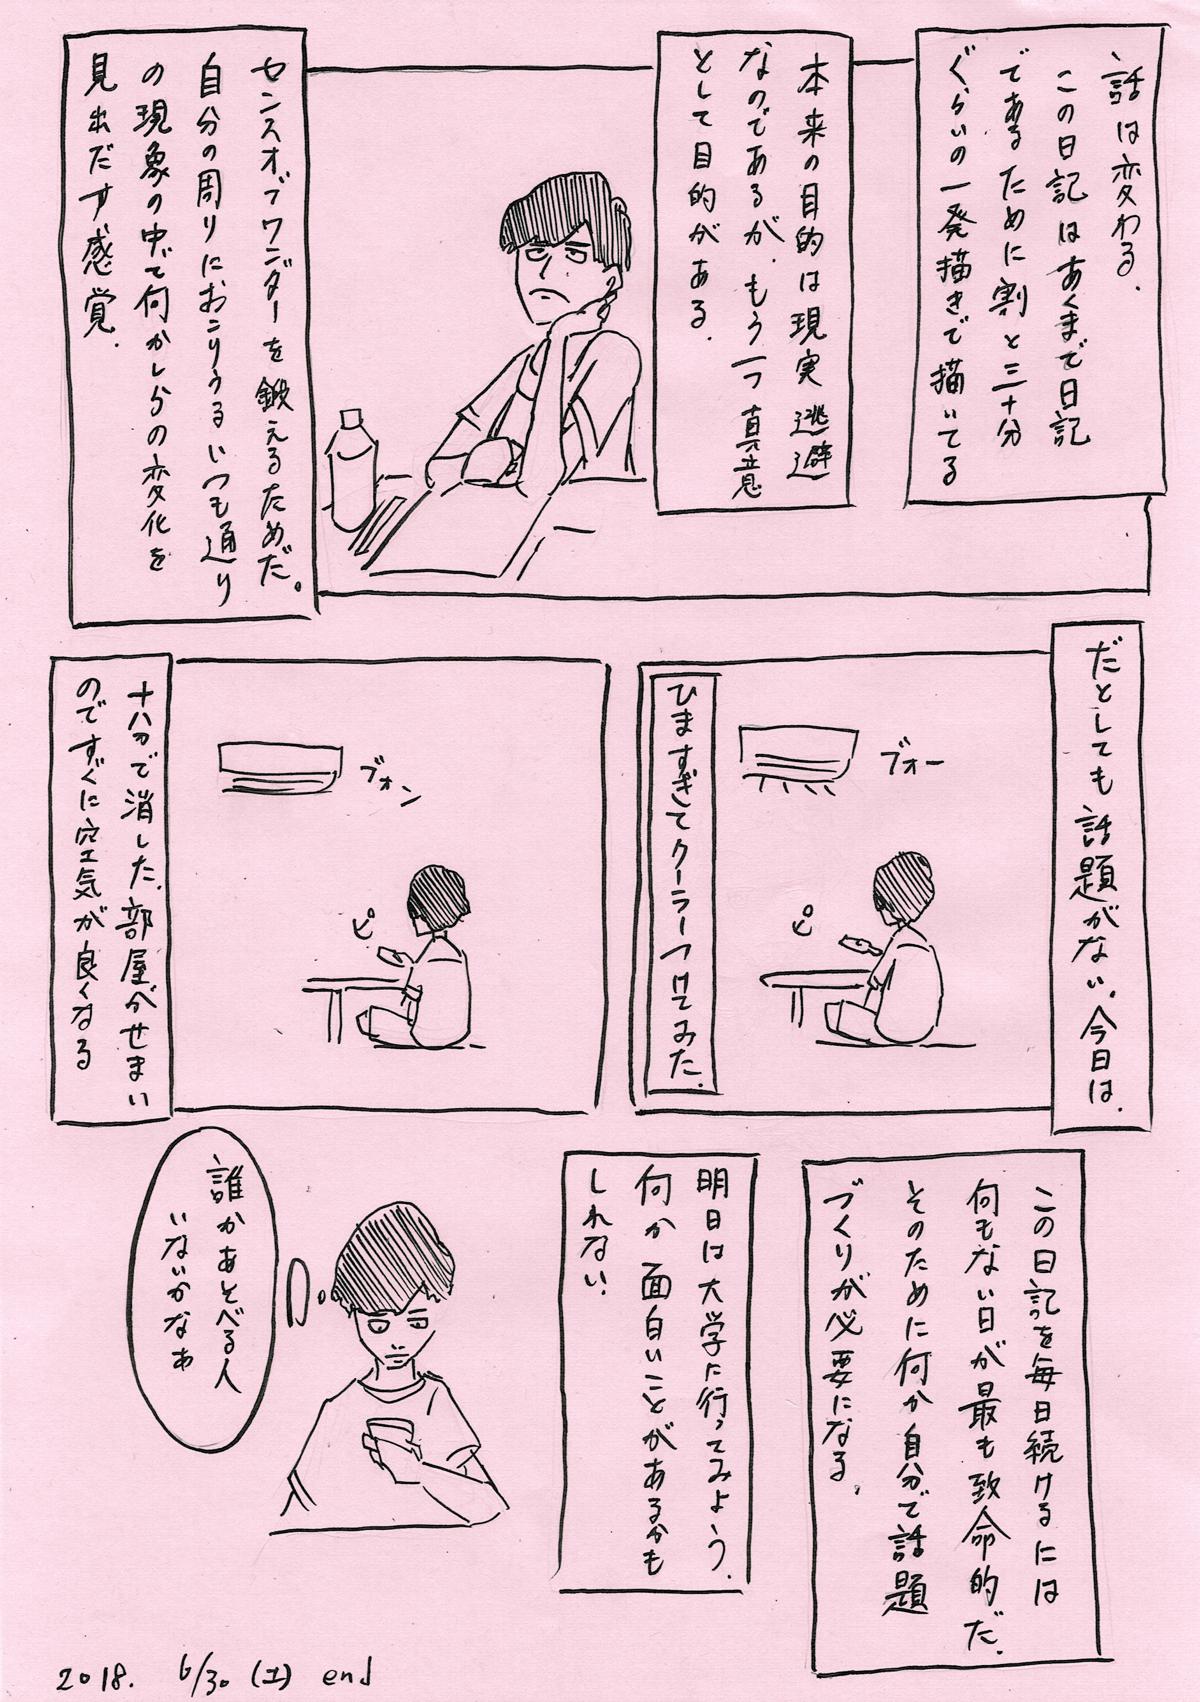 話は変わる.
この日記はあくまで日記
であるために割と三十分
ぐらいの一発描きで描いてる
本来の目的は現実逃避
なのであるが.もう一つ真意
として目的がある.
センスオブワンダーを鍛えるためだ。
自分の周りにおこりうるいつも通り
の現象の中で何かしらの変化を
見出だす感覚.
だとしても話題がない.今日は.
ブォー
ピ
ひますぎてクーラーつけてみた.
ブォン
ピ
十八分で消した.部屋がせまい
のですぐに空気が良くなる
この日記を毎日続けるには
何もない日が最も致命的だ.
そのために何か自分で話題
づくりが必要になる.
明日は大学に行ってみよう.
何か面白いことがあるかも
しれない.
誰かあそべる人
いないかなぁ
2018. 6/30 (土) end